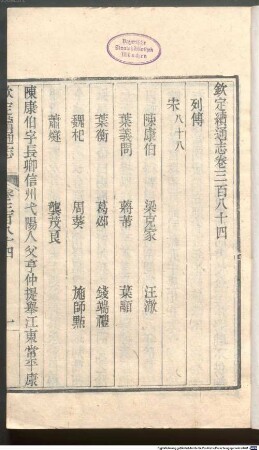 欽定續通志卷三百八十四
列傳
宋八十八
陳康伯 梁克家 汪澈
葉義問 蔣芾 葉顒
葉衡 葛邲 錢端禮
魏杞 周葵 施師點
蕭燧 龔茂良
陳康伯字長卿信州弋陽人父亨仲提舉江東常平康
欽定續通志 卷三百八十四 一
Bayerische
Staatsbibliothek
München